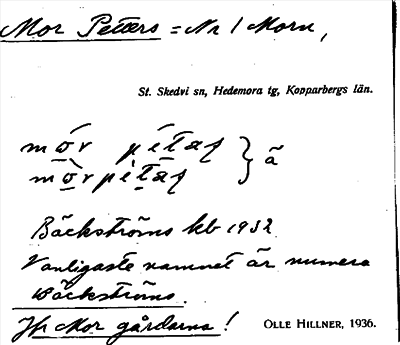 Mor Petters = Nr 1 Morn,
St. Skedvi sn, Hedemora tg, Kopparbergs län.
mo̱r pétaʃ } å
mo̱rpètaʃ
Bäckströms kb 1932
Vanligaste namnet är numera
Bäckströms.
Jfr Mor gårdarna!
OLLE HILLNER, 1936.